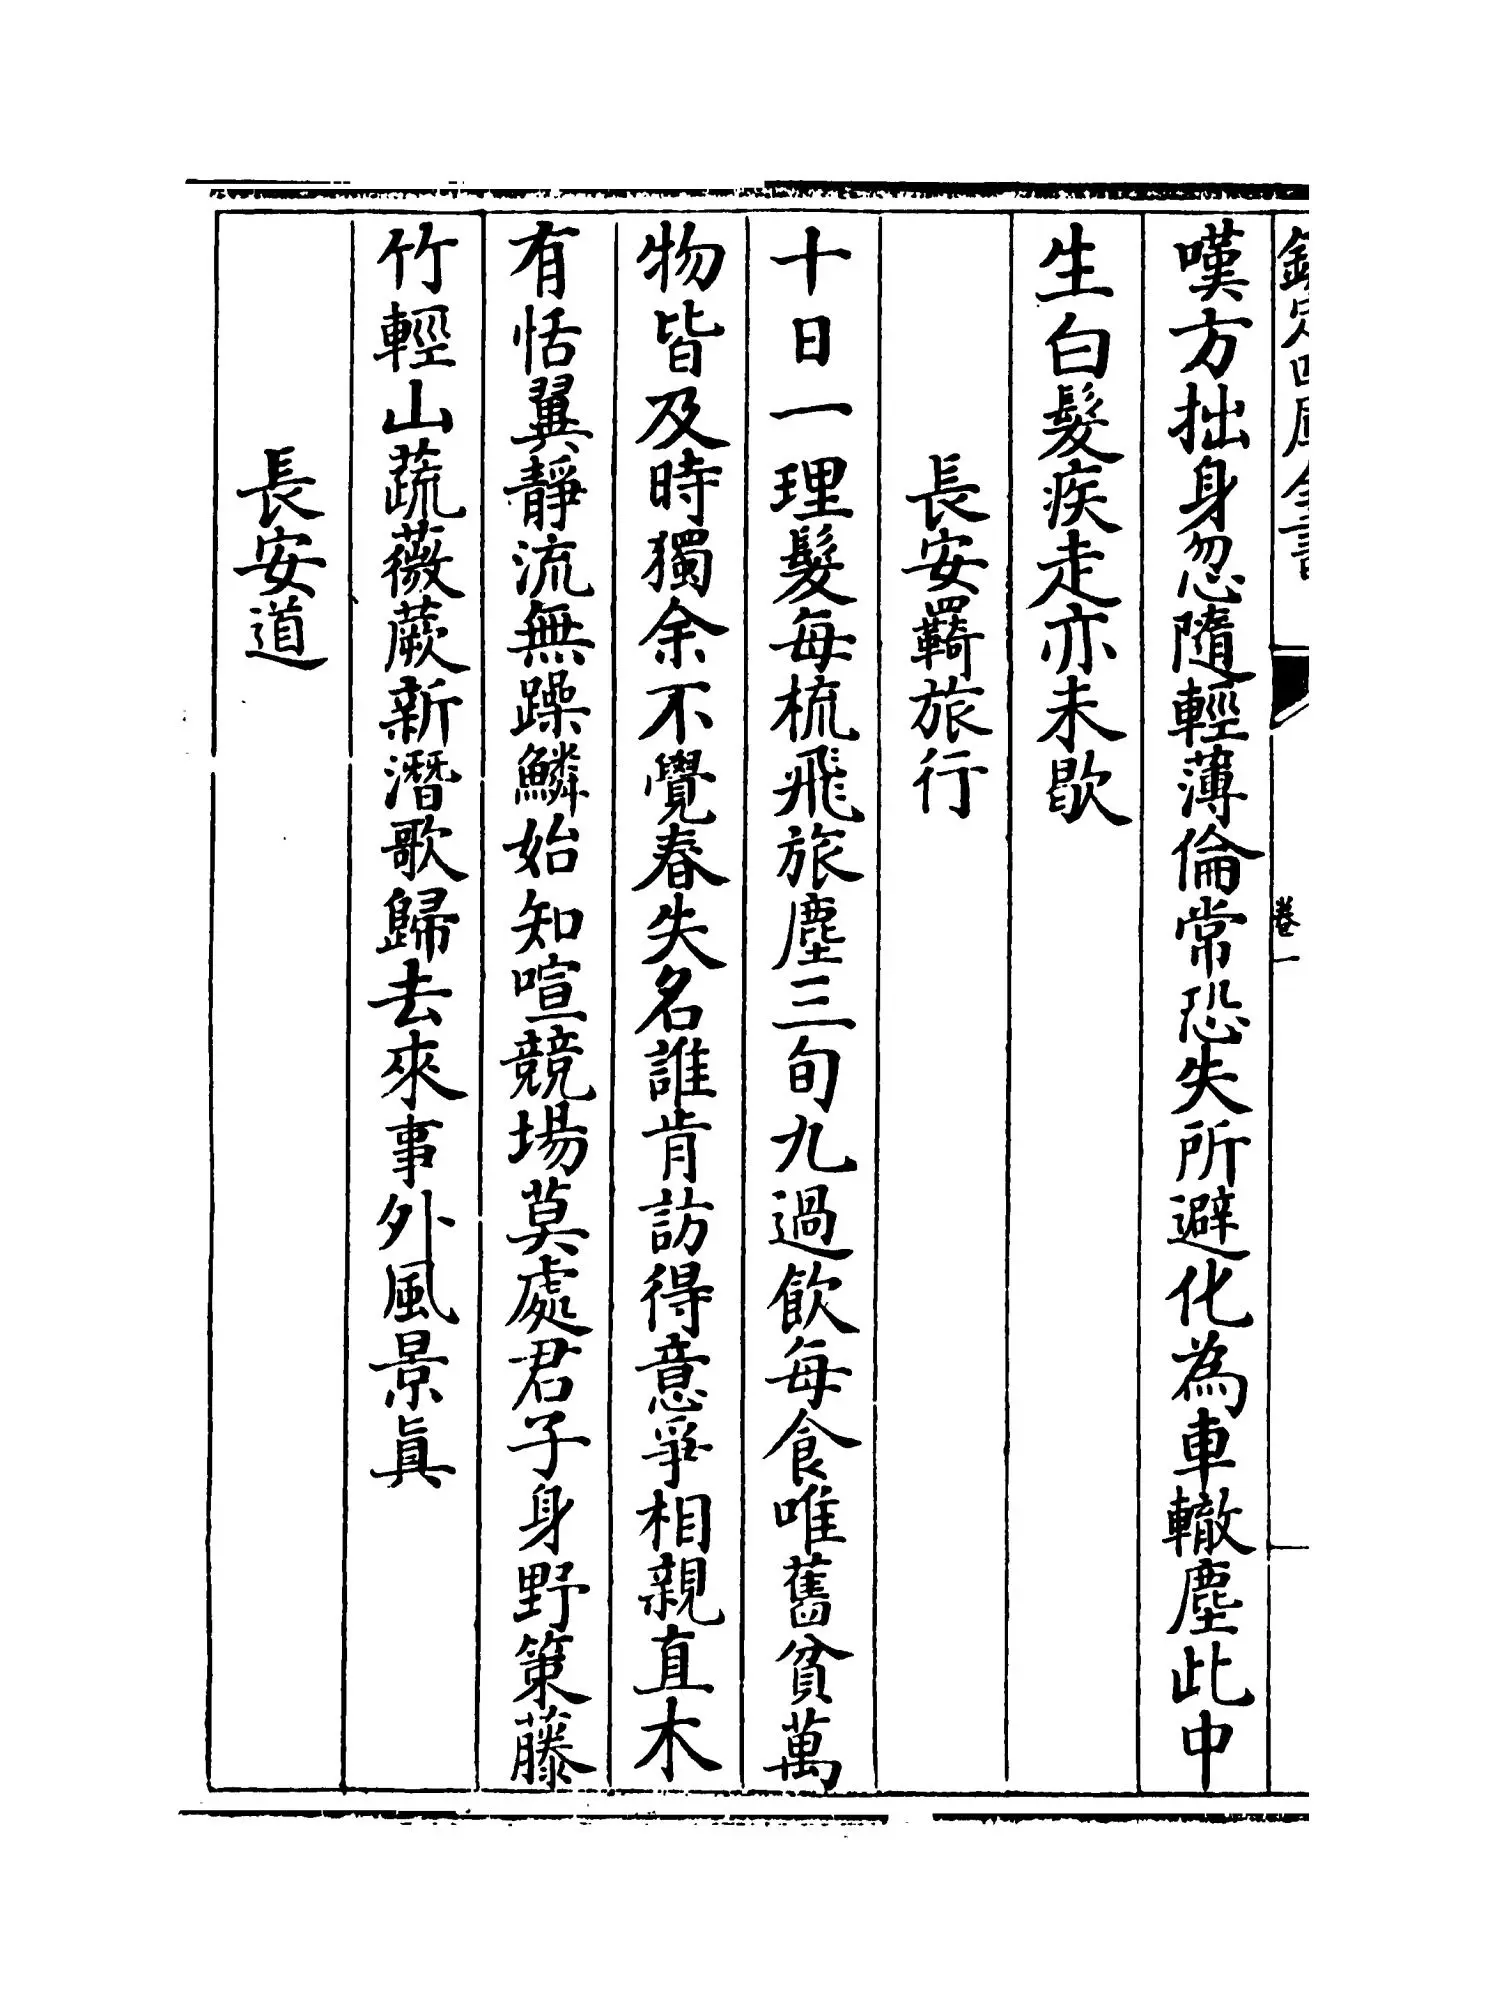 欽定四庫全書
卷一
嘆方拙身忽隨輕薄倫常恐失所避化為車轍塵此中
生白髮疾走亦未歇
長安羈旅行
十日一理髮每梳飛旅塵三旬九過飲每食唯舊貧萬
物皆及時獨余不覺春失名誰肯訪得意爭相親直木
有恬翼靜流無躁鱗始知喧競場莫處君子身野策藤
竹輕山蔬薇蕨新潛歌歸去來事外風景眞
長安道